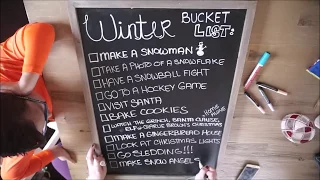 Winter BUCKET LIST:
MAKE A SNOWMAN
TAKE A PHOTO OF A SNOWFLAKE
HAVE A SNOWBALL FIGHT
GO TO A HOCKEY GAME
VISIT SANTA
BAKE COOKIES
WATCH THE GRINCH, SANTA CLAUSE,
ELF & CHARLIE BROWN'S CHRISTMAS
MAKE A GINGERBREAD HOUSE
LOOK AT CHRISTMAS LIGHTS
GO SLEDDING!!!
MAKE SNOW ANGELS